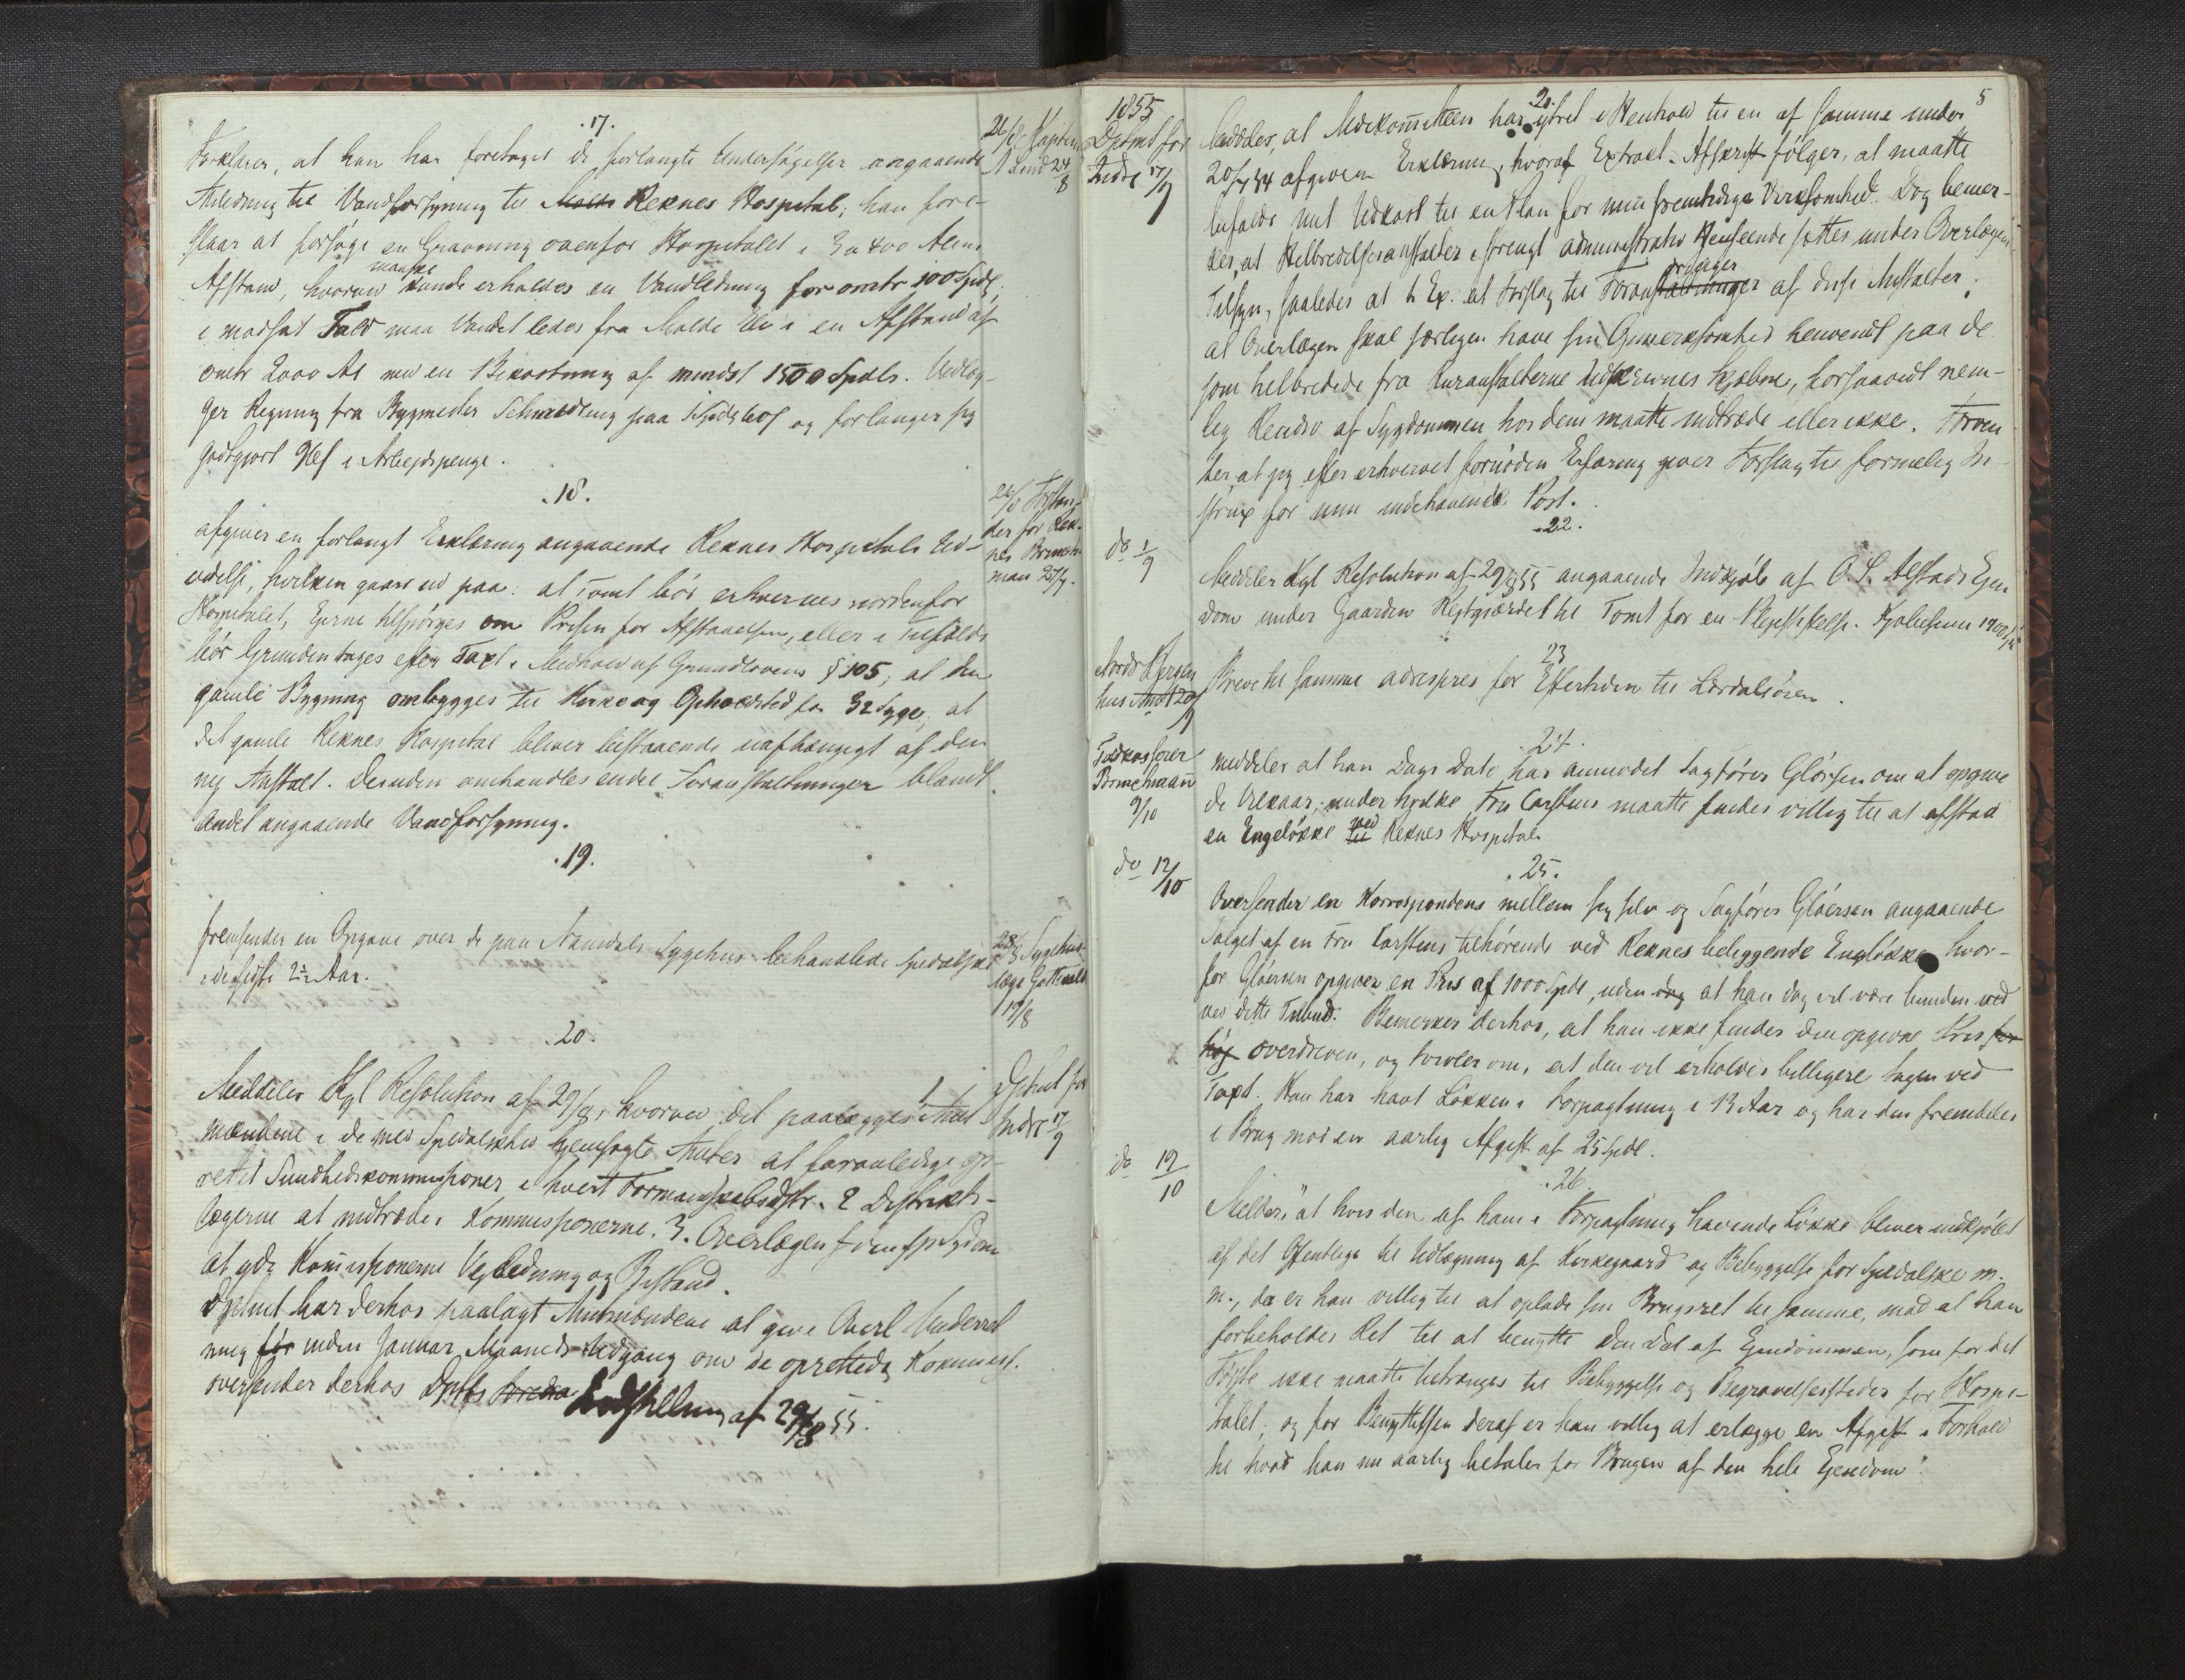 .17.
Forklarer, at han har foretaget de forlangte Undersøgelser angaaende
Anledning til Vandforsyning til Molde Reknes Hospital; han fore-
slaar at forsøge en Gravning ovenfor Hospitalet i 3 a 400 Alens
Afstand, hvorved maaske kunde erholdes en Vandledning for omtr 100 Spdl;
i modsat Fald maa Vandet ledes fra Molde Elv i en Afstand af
omtr 2000 Al med en Bekostning af mindst 1500 Spdlr. Vedlæg-
ger Regning fra Bygmester Schmedling paa 1 Spdl 60 s og forlanger sig
godtgjort i Arbejdspenge.
26/8 Kaptein
.18.
afgiver en forlangt Erklæring angaaende Reknes Hospitals Ud-
videlse, hvilken gaar ud paa: at Tomt bør erhverves nordenfor
Hospitalet, Eierne tilspørges om Prisen for Afstaaelsen, eller i Tilfælde
bør Grunden tages efter Taxt i Medhold af Grundlovens § 105; at den
gamle Bygning ombygges til Kirke og Opholdsted for 32 Syge; at
det gamle Reknes Hospital bliver bestaaende uafhængigt af den
ny Anstalt. Desuden omhandles endel Foranstaltninger blandt
Andet angaaende Vandforsyning.
26/8 Forstan-
der for Rek-
nes Brinch-
man 25/7.
.19.
fremsender en Opgave over de paa Namdals Sygehus behandlede Spedalske
i de sidste 2½ Aar.
28/8 Sygehus-
læge Gottwald
17/8
.20.
Meddeler Kgl Resolution af 29/8, hvorved det paalægges 1 Amt
mændene i de med Spedalskhed hjemsøgte Amter at foranledige op-
rettet Sundhedskommissioner i hvert Formandskabsdistr. 2 Distrikts-
lægerne at indtræde i Kommissionerne. 3. Overlægen f den sp Sygdom
at yde Kommissionerne Vejledning og Bistand.
Dptmt har derhos paalagt Amtmændene at give Overl Underret
ning før inden Januar Maaneds Udgang om de oprettede Kommiss.
oversender derhos Dptts Foredra Indstilling af 29/8 55.
Dptmt for
Indre 17/9
5
1855
Dptmt for
Indre 17/9
.21.
Meddeler, at Medkomitteen har ytret i Henhold til en af samme under
20/7 54 afgiven Erklæring, hvoraf Extract-Afskrift følger, at maatte
bifalde mit Udkast til en Plan for min fremtidige Virksomhed. Dog bemær-
kes, at Helbredelsesanstalter i strengt administrativ Henseende sættes under Overlægens
Tilsyn, saaledes at t. Ex. et Forslag til Foranstaltninger af disse Anstalter;
at Overlægen skal særligen have sin Opmærksomhed henvendt paa de
som helbredede fra Kuranstalterne udskrevnes Skjæbne, hvorsaavidt nem-
lig Recidiv af Sygdommen hos dem maatte indtræde eller ikke. Forven
ter at jeg efter erhvervet fornøden Erfaring giver Forslag til formelig In-
strux for min indehavende Post.
do 1/9
.22.
Meddeler Kgl Resolution af 29/8 55 angaaende Indkjøb af O. S. Alstads Ejen
dom under Gaarden til Tomt for en Plejestiftelse. Kjøbesum 1700 Spd
Nordre Bergen
hus Amt 20/9
23
Breve til samme adresseres for Eftertiden til Lærdalsøren.
Toldkasserer
Brinchmann
9/10
.24.
meddeler at han Dags Dato har anmodet Sagfører Gløersen om at opgive
de Vilkaar, under hvilke Fru Carstens maatte findes villig til at afstaa
en Engeløkke til ved Reknes Hospital.
do 12/10
.25.
Oversender en Korrespondens mellem sig selv og Sagfører Gløersen angaaende
Salget af en Fru Carstens tilhørende ved Reknes beliggende Engeløkke hvor-
for Gløersen opgiver en Pris af 1000 Spdl, uden dog at han dog vil være bunden ved
ved dette Tilbud. Bemærker derhos, at han ikke finder den opgivne Pris for
høj overdreven, og tvivler om, at den vil erholdes billigere tagen ved
Taxt. Han har havt Løkken i Forpagtning i 13 Aar og har den fremdeles
i Brug mod en aarlig Afgift af 25 Spdl.
do 19/10
.26.
Melder, "at hvis den af ham i Forpagtning havende Løkke bliver indkjøbt
af det Offentlige til Udlægning af Kirkegaard og Bebyggelse for Spedalske m.
m., da er han villig til at oplade sin Brugsret til samme, mod at han
forbeholdes Ret til at benytte den Del af Ejendommen, som for det
Første ikke maatte betrænges til Bebyggelse og Begravelsessteder for Hospi-
talet; og for Benyttelsen deraf er han villig at erlægge en Afgift i Forhold
til hvad han nu aarlig betaler for Brugen af den hele Ejendom".